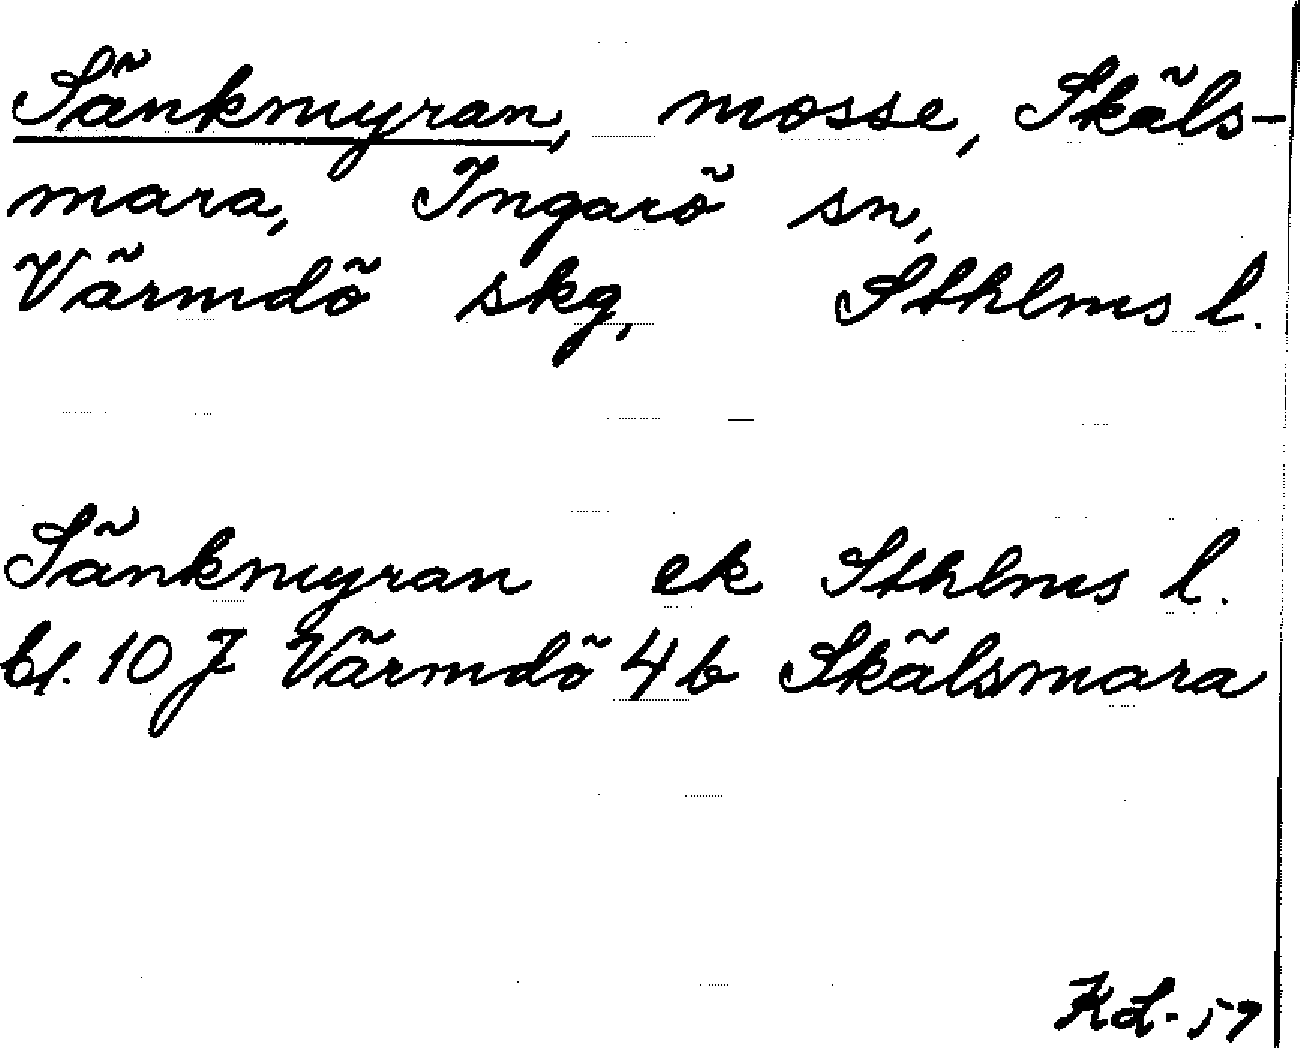 Sänkmyran, mosse, Skäls-
mara, Ingarö sn,
Värmdö skg, Sthlms l.
Sänkmyran ek Sthlms l.
bl. 10 J Värmdö 4 b Skälsmara
KL-57